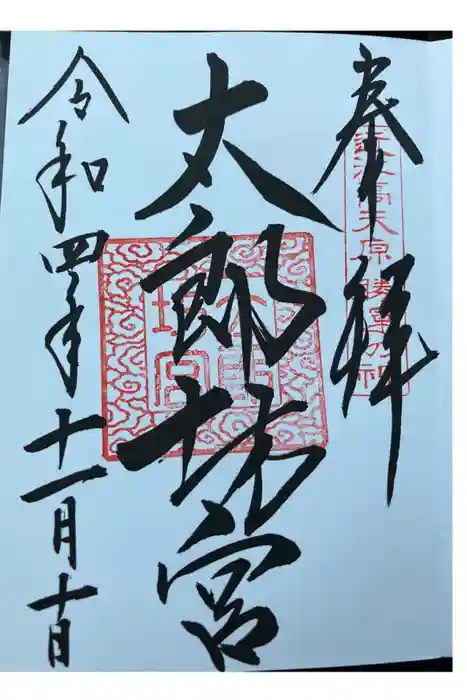 奉拝
太郎坊宮
令和四年十一月十日